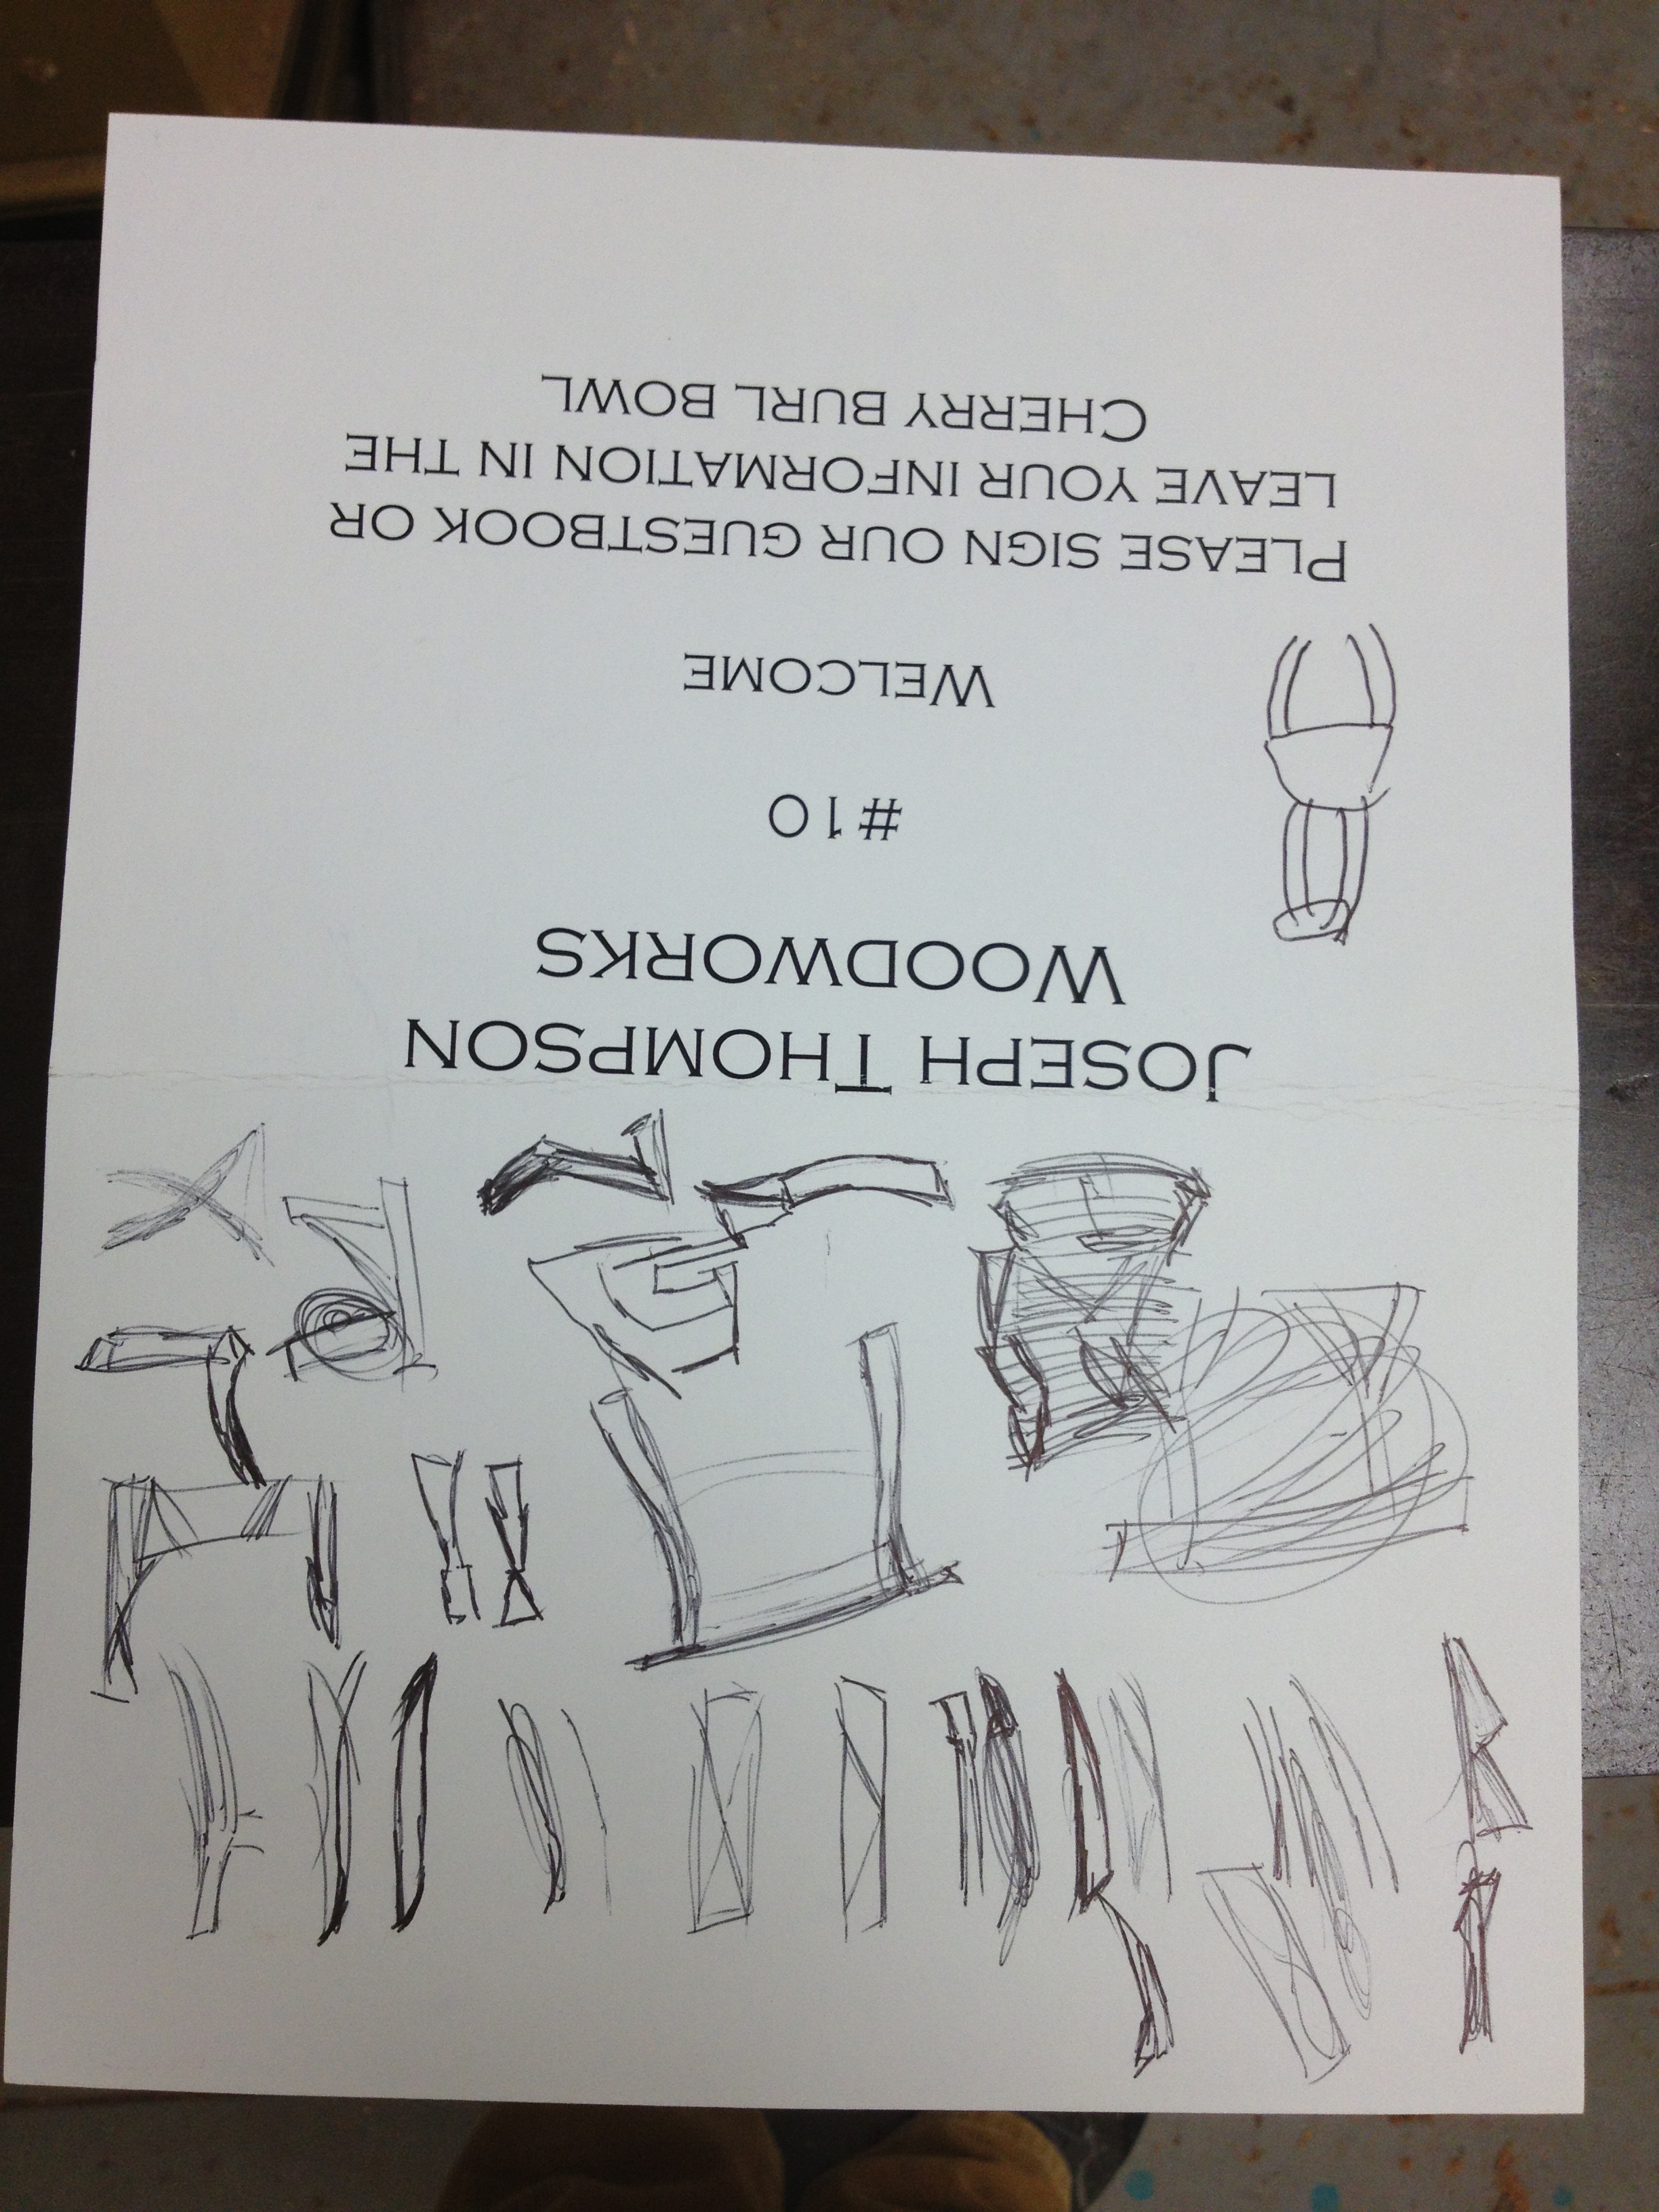 JOSEPH THOMPSON
WOODWORKS
#10
WELCOME
PLEASE SIGN OUR GUESTBOOK OR
LEAVE YOUR INFORMATION IN THE
CHERRY BURL BOWL